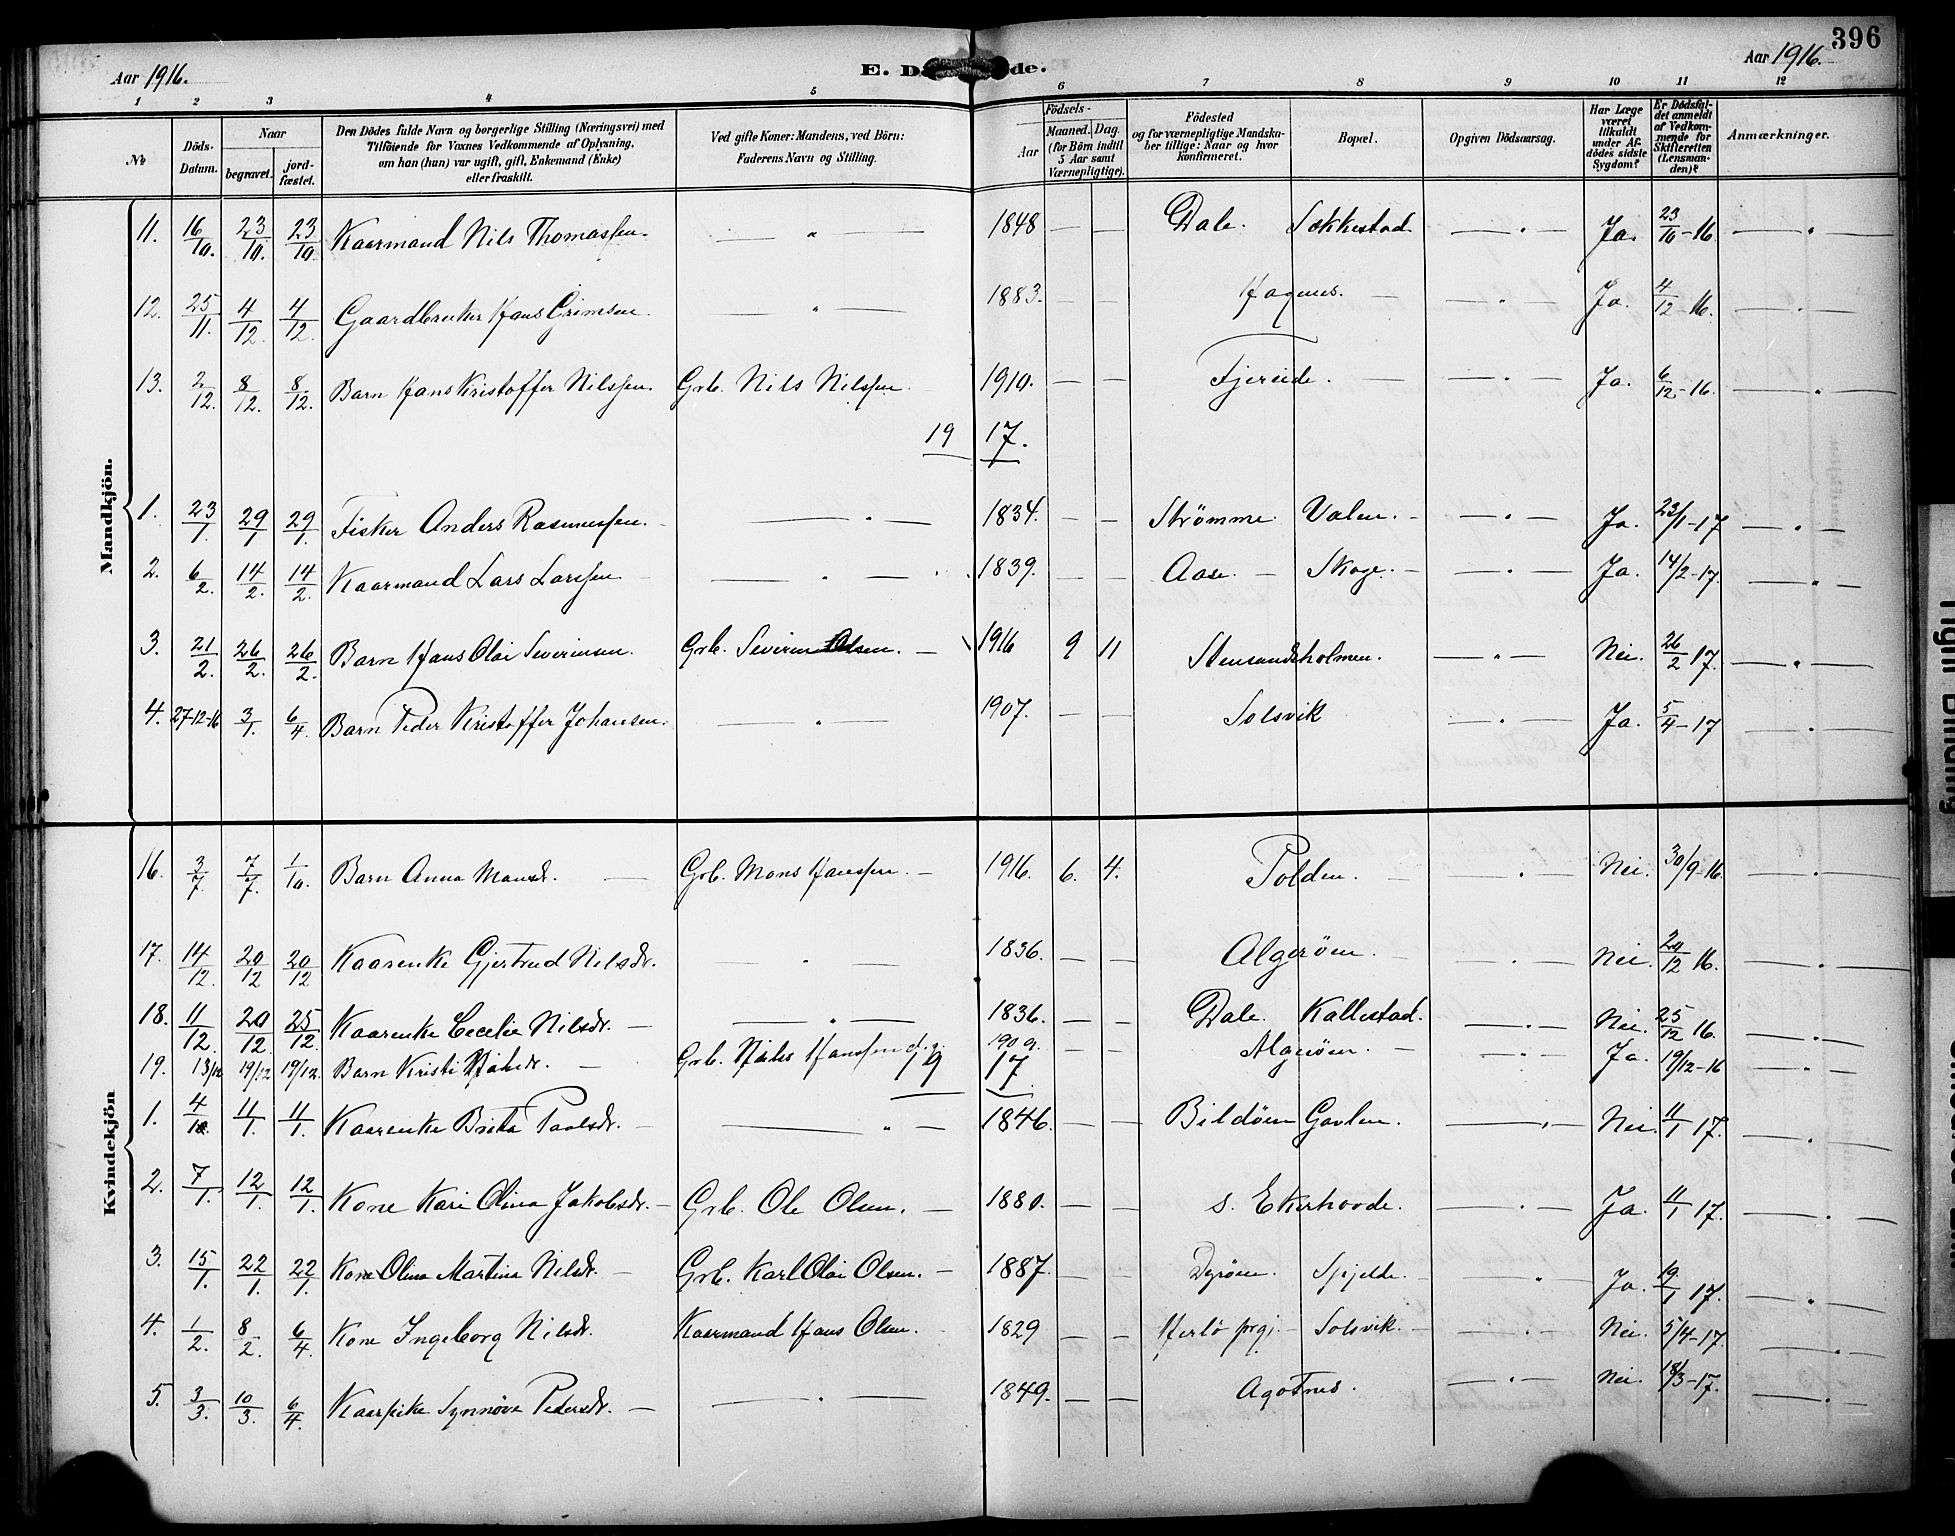 396
Aar 1916.
E. Dö de.
Aar 1916.
1 2 3 4 5 6 7 8 9 10 11 12
№
Döds-Datum.
Naar
begravet.
jordfæstet.
Den Dödes fulde Navn og borgerlige Stilling (Næringsvei) med Tilföiende for Voxnes Vedkommende af Oplysning, om han (hun) var ugift, gift, Enkemand (Enke) eller fraskilt.
Ved gifte Koner: Mandens, ved Börn: Faderens Navn og Stilling.
Födsels-
Aar
Maaned. Dag.
(for Börn indtil 5 Aar samt Værnepligtige).
Födested og for værnepligtige Mandskaber tillige: Naar og hvor konfirmeret.
Bopæl.
Opgiven Dödsaarsag.
Har Læge været tilkaldt under Afdödes sidste Sygdom?
Er Dödsfaldet anmeldt af Vedkommende for Skifteretten (Lensmanden)?
Anmærkninger.
Mandkjön.
11. 16/10. 23/10. 23/10. Kaarmand Nils Thomassen. — " — 1848 — — Dale. Sekkestad. — " — Ja. 23/10-16. — " —
12. 25/11. 4/12. 4/12. Gaardbruker Hans Grimsen. — " — 1883. — — Hagenes. — " — Ja. 4/12-16. — " —
13. 2/12. 8/12. 8/12. Barn Hans Kristoffer Nilssen. Grb. Nils Nilssen. 1910. — — Fjereide. — " — Ja. 6/12-16. — " —
19 17.
1. 23/1. 29/1 29/1. Fisker Anders Rasmussen. — " — 1834. — — Strømme. Valen. — " — Ja. 23/1-17 — " —
2. 6/2. 14/2. 14/2. Kaarmand Lars Larssen. — " — 1839. — — Aase. — Skoge. — " — Ja. 14/2-17. — " —
3. 21/2. 26/2. 26/2. Barn Hans Olai Severinsen. Grb. Severin Olsen. — 1916 9 11 Stensandsholmen. — " — Nei. 26/2 17. — " —
4. 27-12-16 3/1. 6/4. Barn Peder Kristoffer Johansen. — " — 1907. — — Solsvik — " — Ja. 5/4-17 — " —
Kvindekjön
16. 3/7 7/7. 1/10. Barn Anna Monsdr. — Grb. Mons Hanssen. — 1916. 6. 4. Polden. — " — Nei. 30/9-16. — " —
17. 14/12. 20/12 20/12 Kaarenke Gjertrud Nilsdr. — " — 1836. — — Algerøen. — " — Nei. 20/12 16. — " —
18. 11/12. 20/12. 25/12. Kaarenke Cecelie Nilsdr. — " — 1836. — — Dale. Kallestad. — " — Nei. 25/12 16. — " —
19. 13/12 19/12 19/12. Barn Kristi — Grb. Hanssen 1909. — — Algerøen. — " — Ja. 19/12-16 — " —
19 17
1. 4/ 11/1. 11/1. Kaarenke Brita Paalsdr. — " — 1846. — — Bildøen Gavlen. — " — Nei. 11/1 17. — " —
2. 7/1. 12/1. 12/1. Kone Kari Olina Jakobsdr. — Grb. Ole Olsen. — 1880. — — s. Ekerhovde. — " — Ja. 11/1 17. — " —
3. 15/1. 22/1. 22/1. Kone Olina Martina Nilsdr. — Grb. Karl Olai Olsen. — 1887. — — Dyrøen. Spjelde. — " — Ja. 19/1 17. — " —
4. 1/2. 8/2. 6/4 Kone Ingeborg Nilsdr. Kaarmand Hans Olsen. 1829 — — Herlö prgj. — Solsvik. — " — Nei. 5/4-17. — " —
5. 3/3. 10/3. 6/4. Kaarpike Synnøve Pedersdr. — " — 1849. — — Agotnes. — " — Nei. 18/3-17. — " —